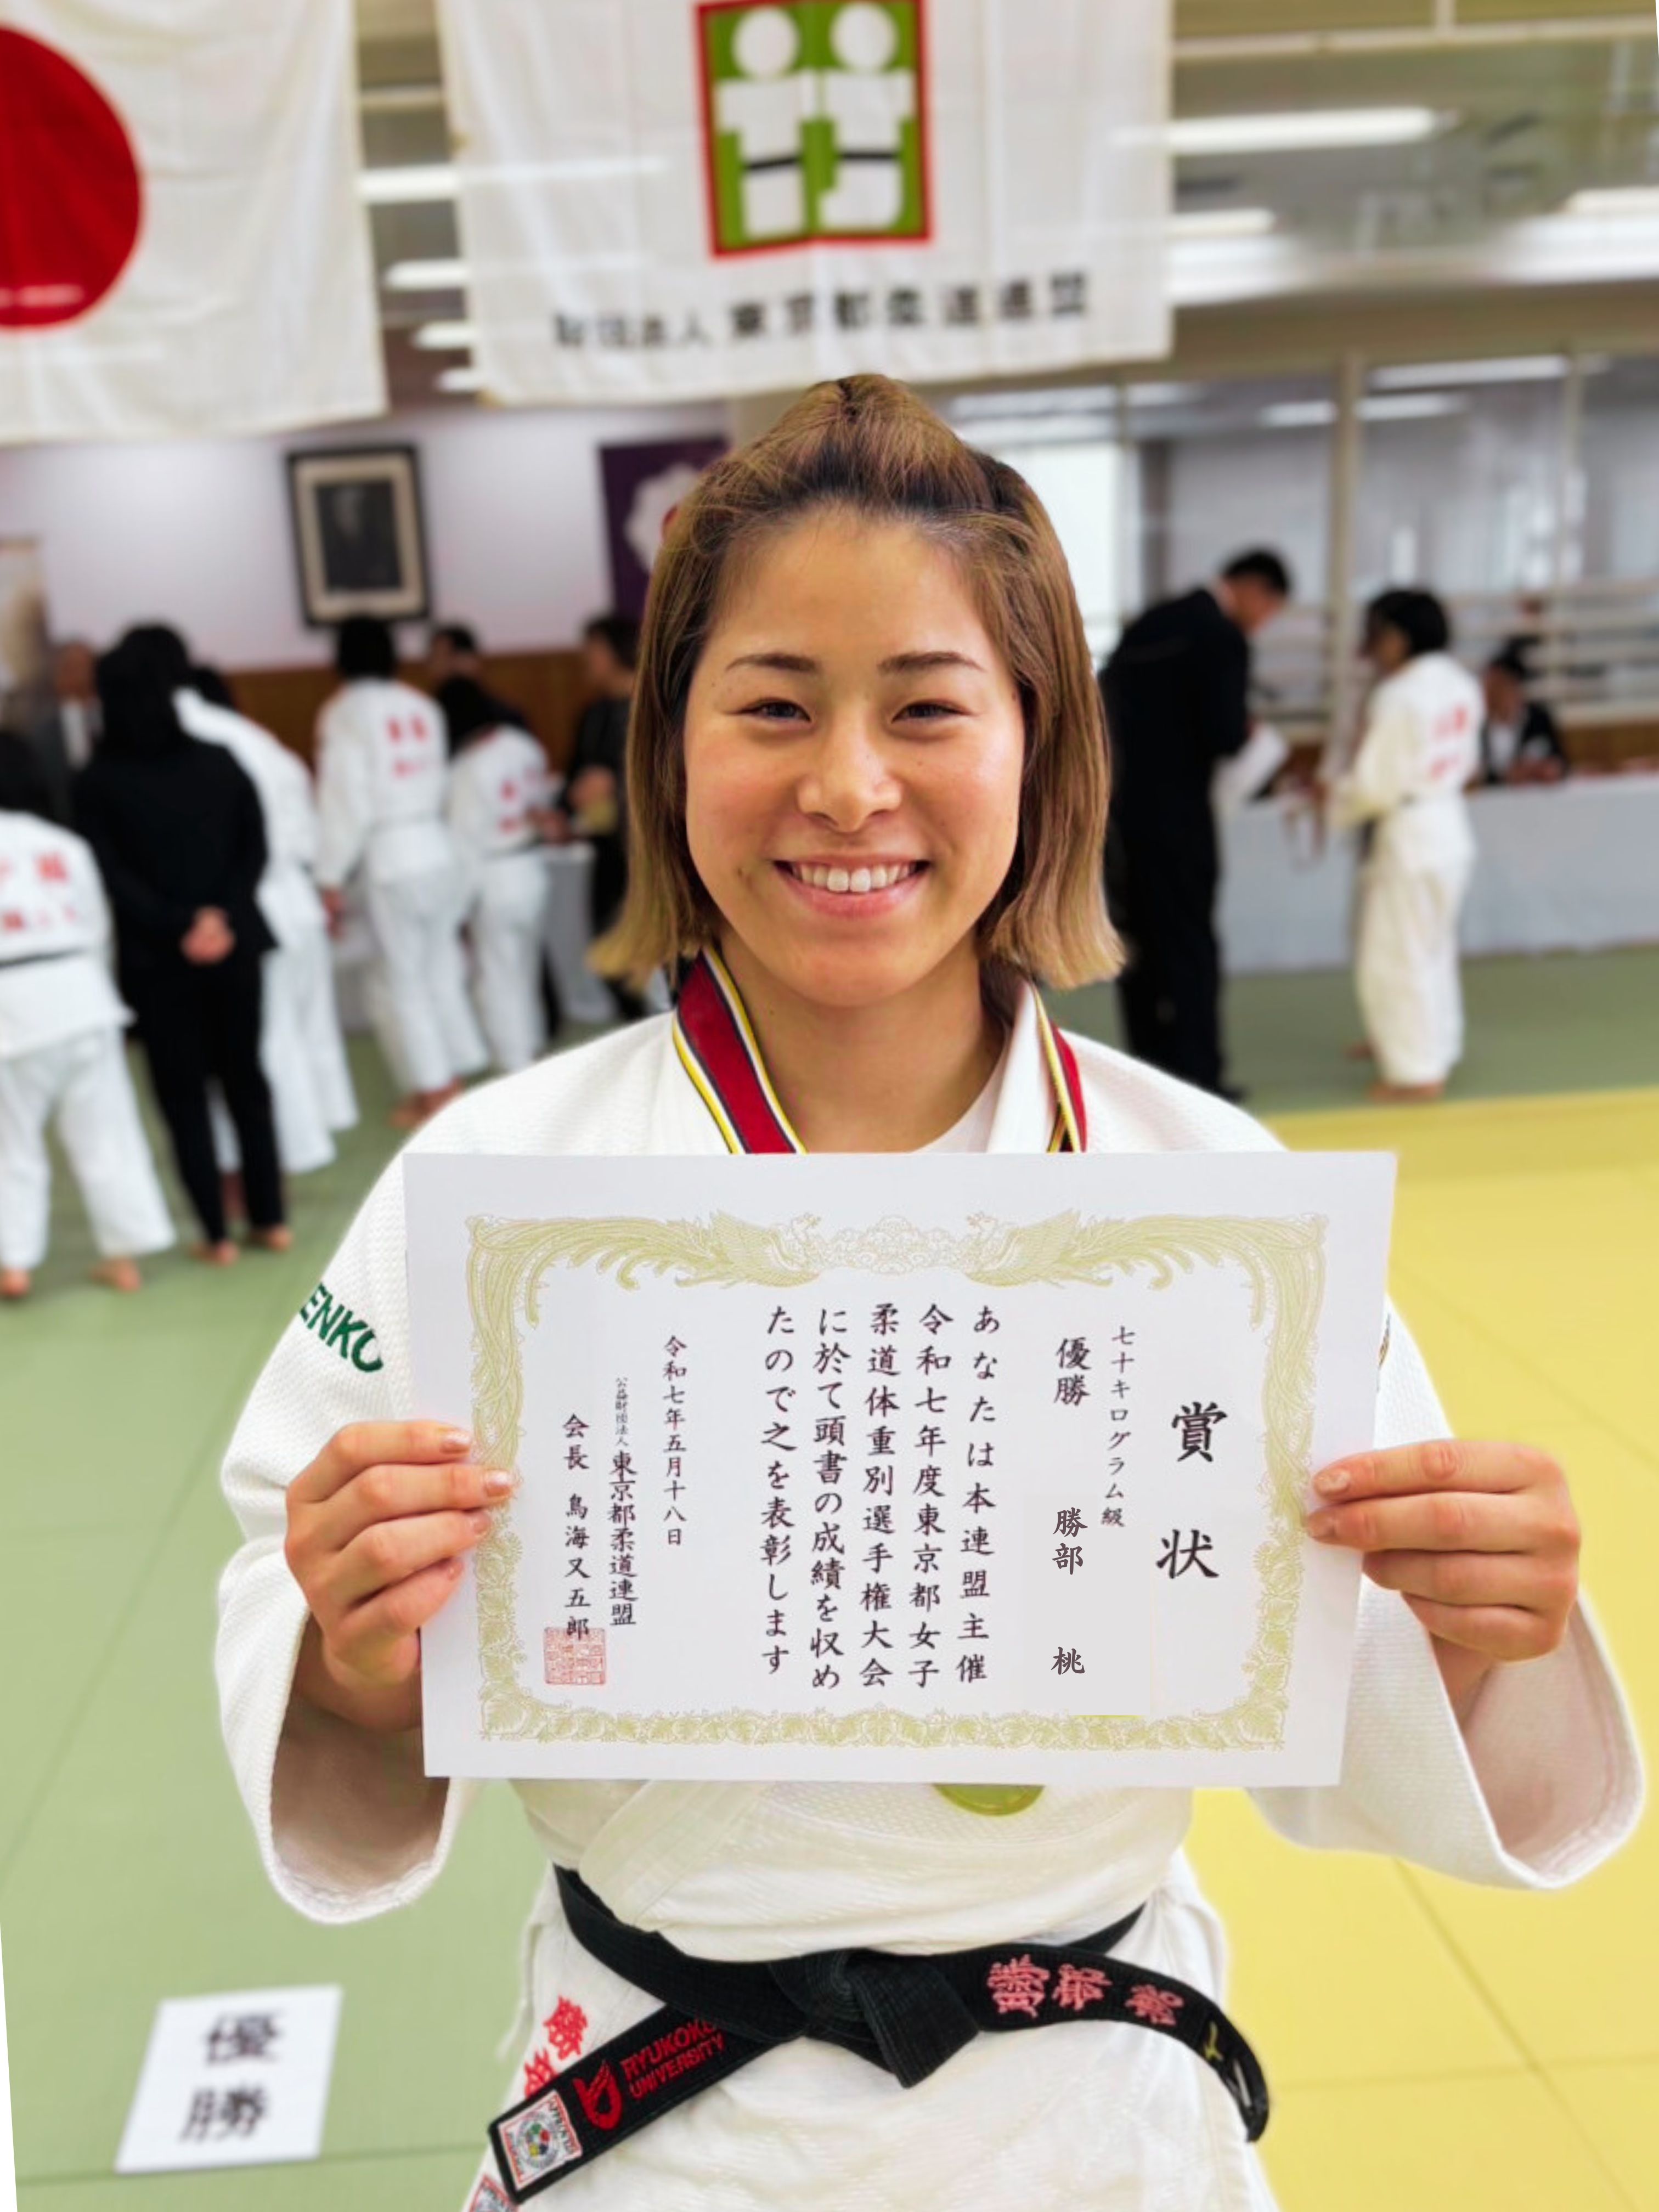 財団法人 東京都柔道連盟
賞状
七十キログラム級
優勝 勝部 桃
あなたは本連盟主催
令和七年度東京都女子
柔道体重別選手権大会
に於て頭書の成績を収め
たので之を表彰します
令和七年五月十八日
公益財団法人 東京都柔道連盟
会長 鳥海又五郎
ENKO
優勝
勝部
RYUKOKU
UNIVERSITY
勝